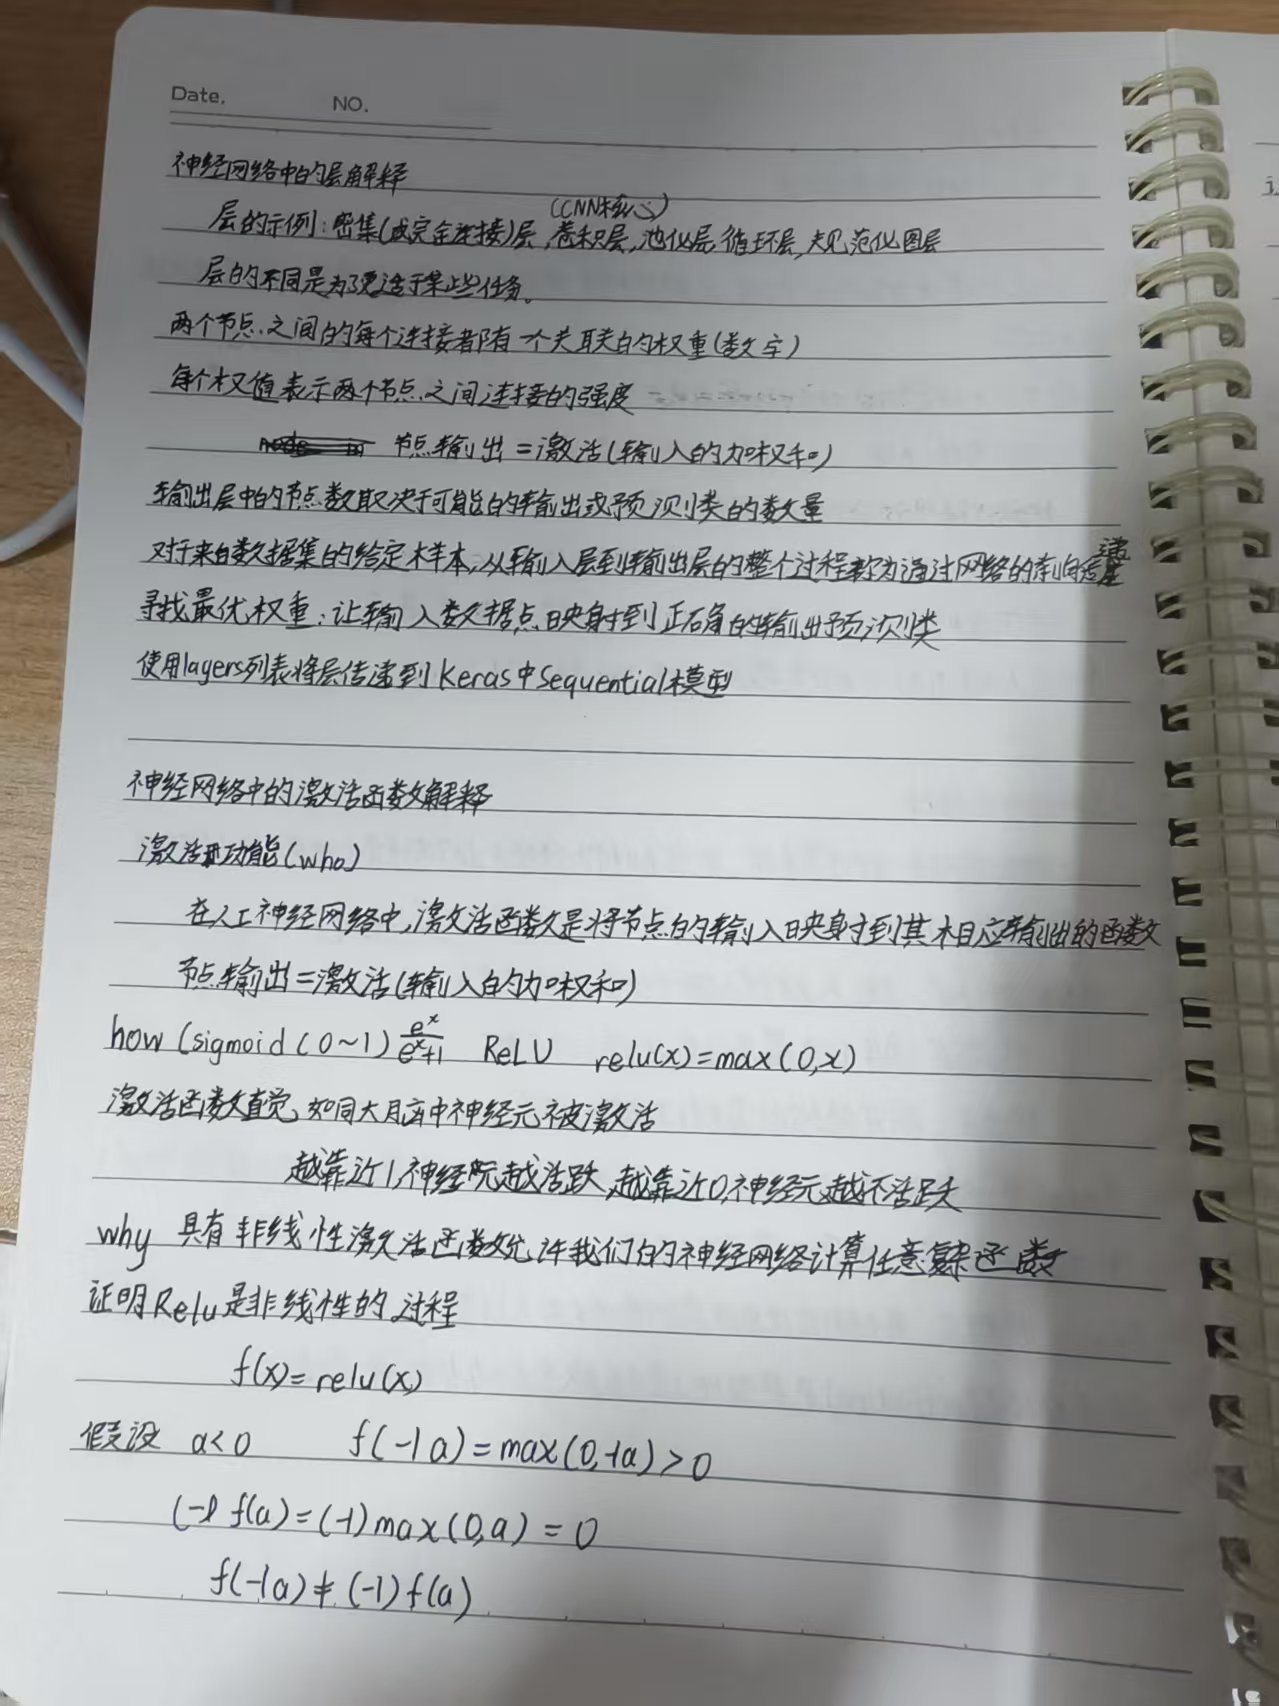 Date. NO.
神经网络中的层解释
(CNN核心)
层的示例:密集(或完全连接)层,卷积层,池化层,循环层,规范化图层
层的不同是为了更适于某些任务。
两个节点之间的每个连接都有一个关联的权重(数字)
每个权值表示两个节点之间连接的强度
节点输出=激活(输入的加权和)
输出层中的节点数取决于可能的输出或预测类的数量
对于来自数据集的给定样本,从输入层到输出层的整个过程称为通过网络的前向传递
寻找最优权重:让输入数据点映射到正确的输出预测类
使用layers列表将层传递到Keras中Sequential模型
神经网络中的激活函数解释
激活功能(who)
在人工神经网络中,激活函数是将节点的输入映射到其相应输出的函数
节点输出=激活(输入的加权和)
how (sigmoid (0~1) e^x/e^x+1 ReLU relu(x)=max(0,x)
激活函数直觉,如同大脑中神经元被激活
越靠近1,神经元越活跃,越靠近0,神经元越不活跃
why 具有非线性激活函数允许我们的神经网络计算任意复杂函数
证明Relu是非线性的过程
f(x)=relu(x)
假设 a<0 f(-1a)=max(0,-1a)>0
(-1) f(a)=(-1)max(0,a)=0
f(-1a)≠(-1)f(a)